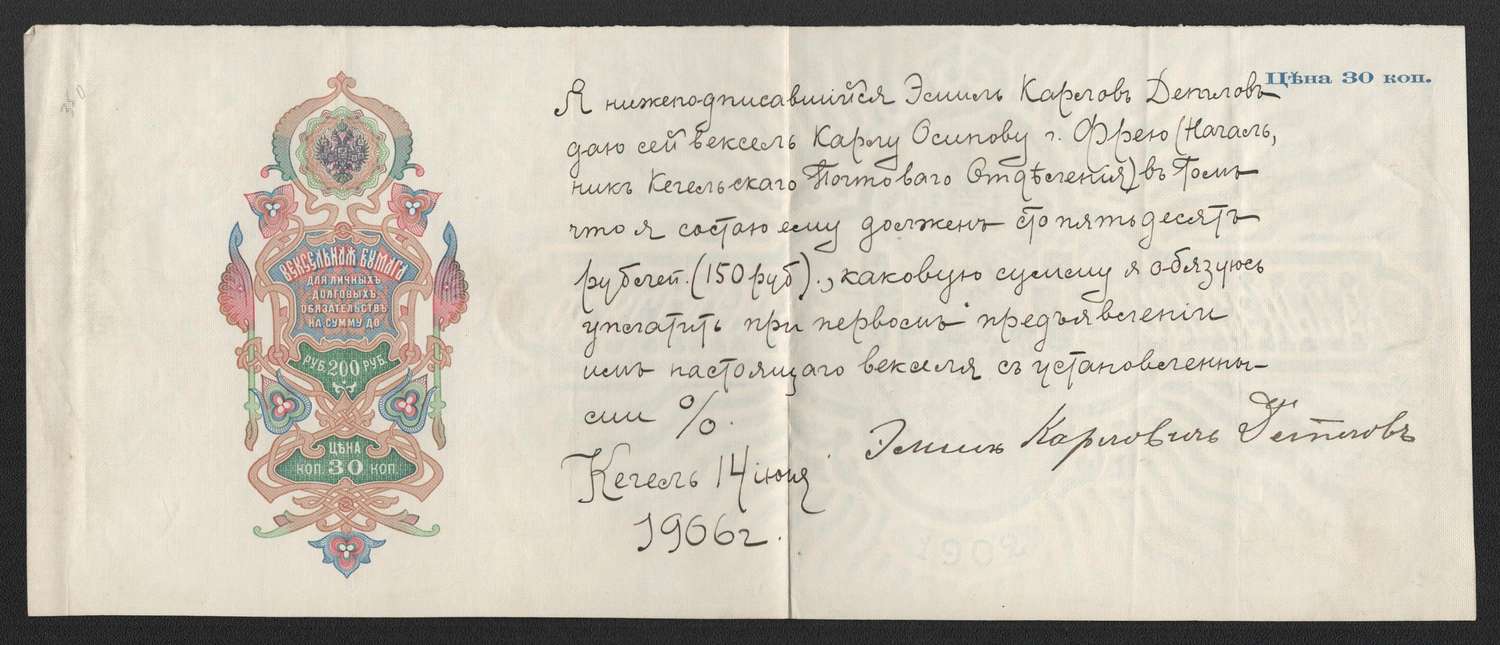 Цѣна 30 коп.
ВЕКСЕЛЬНАЯ БУМАГА
ДЛЯ ЛИЧНЫХЪ
ДОЛГОВЫХЪ
ОБЯЗАТЕЛЬСТВЪ
НА СУММУ ДО
РУБ. 200 РУБ.
ЦѢНА
КОП. 30 КОП.
Я нижеподписавшійся Эмиль Карловъ Детловъ
даю сей вексель Карлу Осипову г. Фрею (Началь,
никъ Кегельскаго Почтоваго Отдѣленія) въ томъ
что я состою ему долженъ сто пятьдесятъ
рублей. (150 руб)., каковую сумму я обязуюсь
уплатить при первомъ предъявленіи
имъ настоящаго векселя съ установленны-
ми %.
Эмиль Карловичъ Детловъ
Кегель 14 іюня
1906 г.
1902